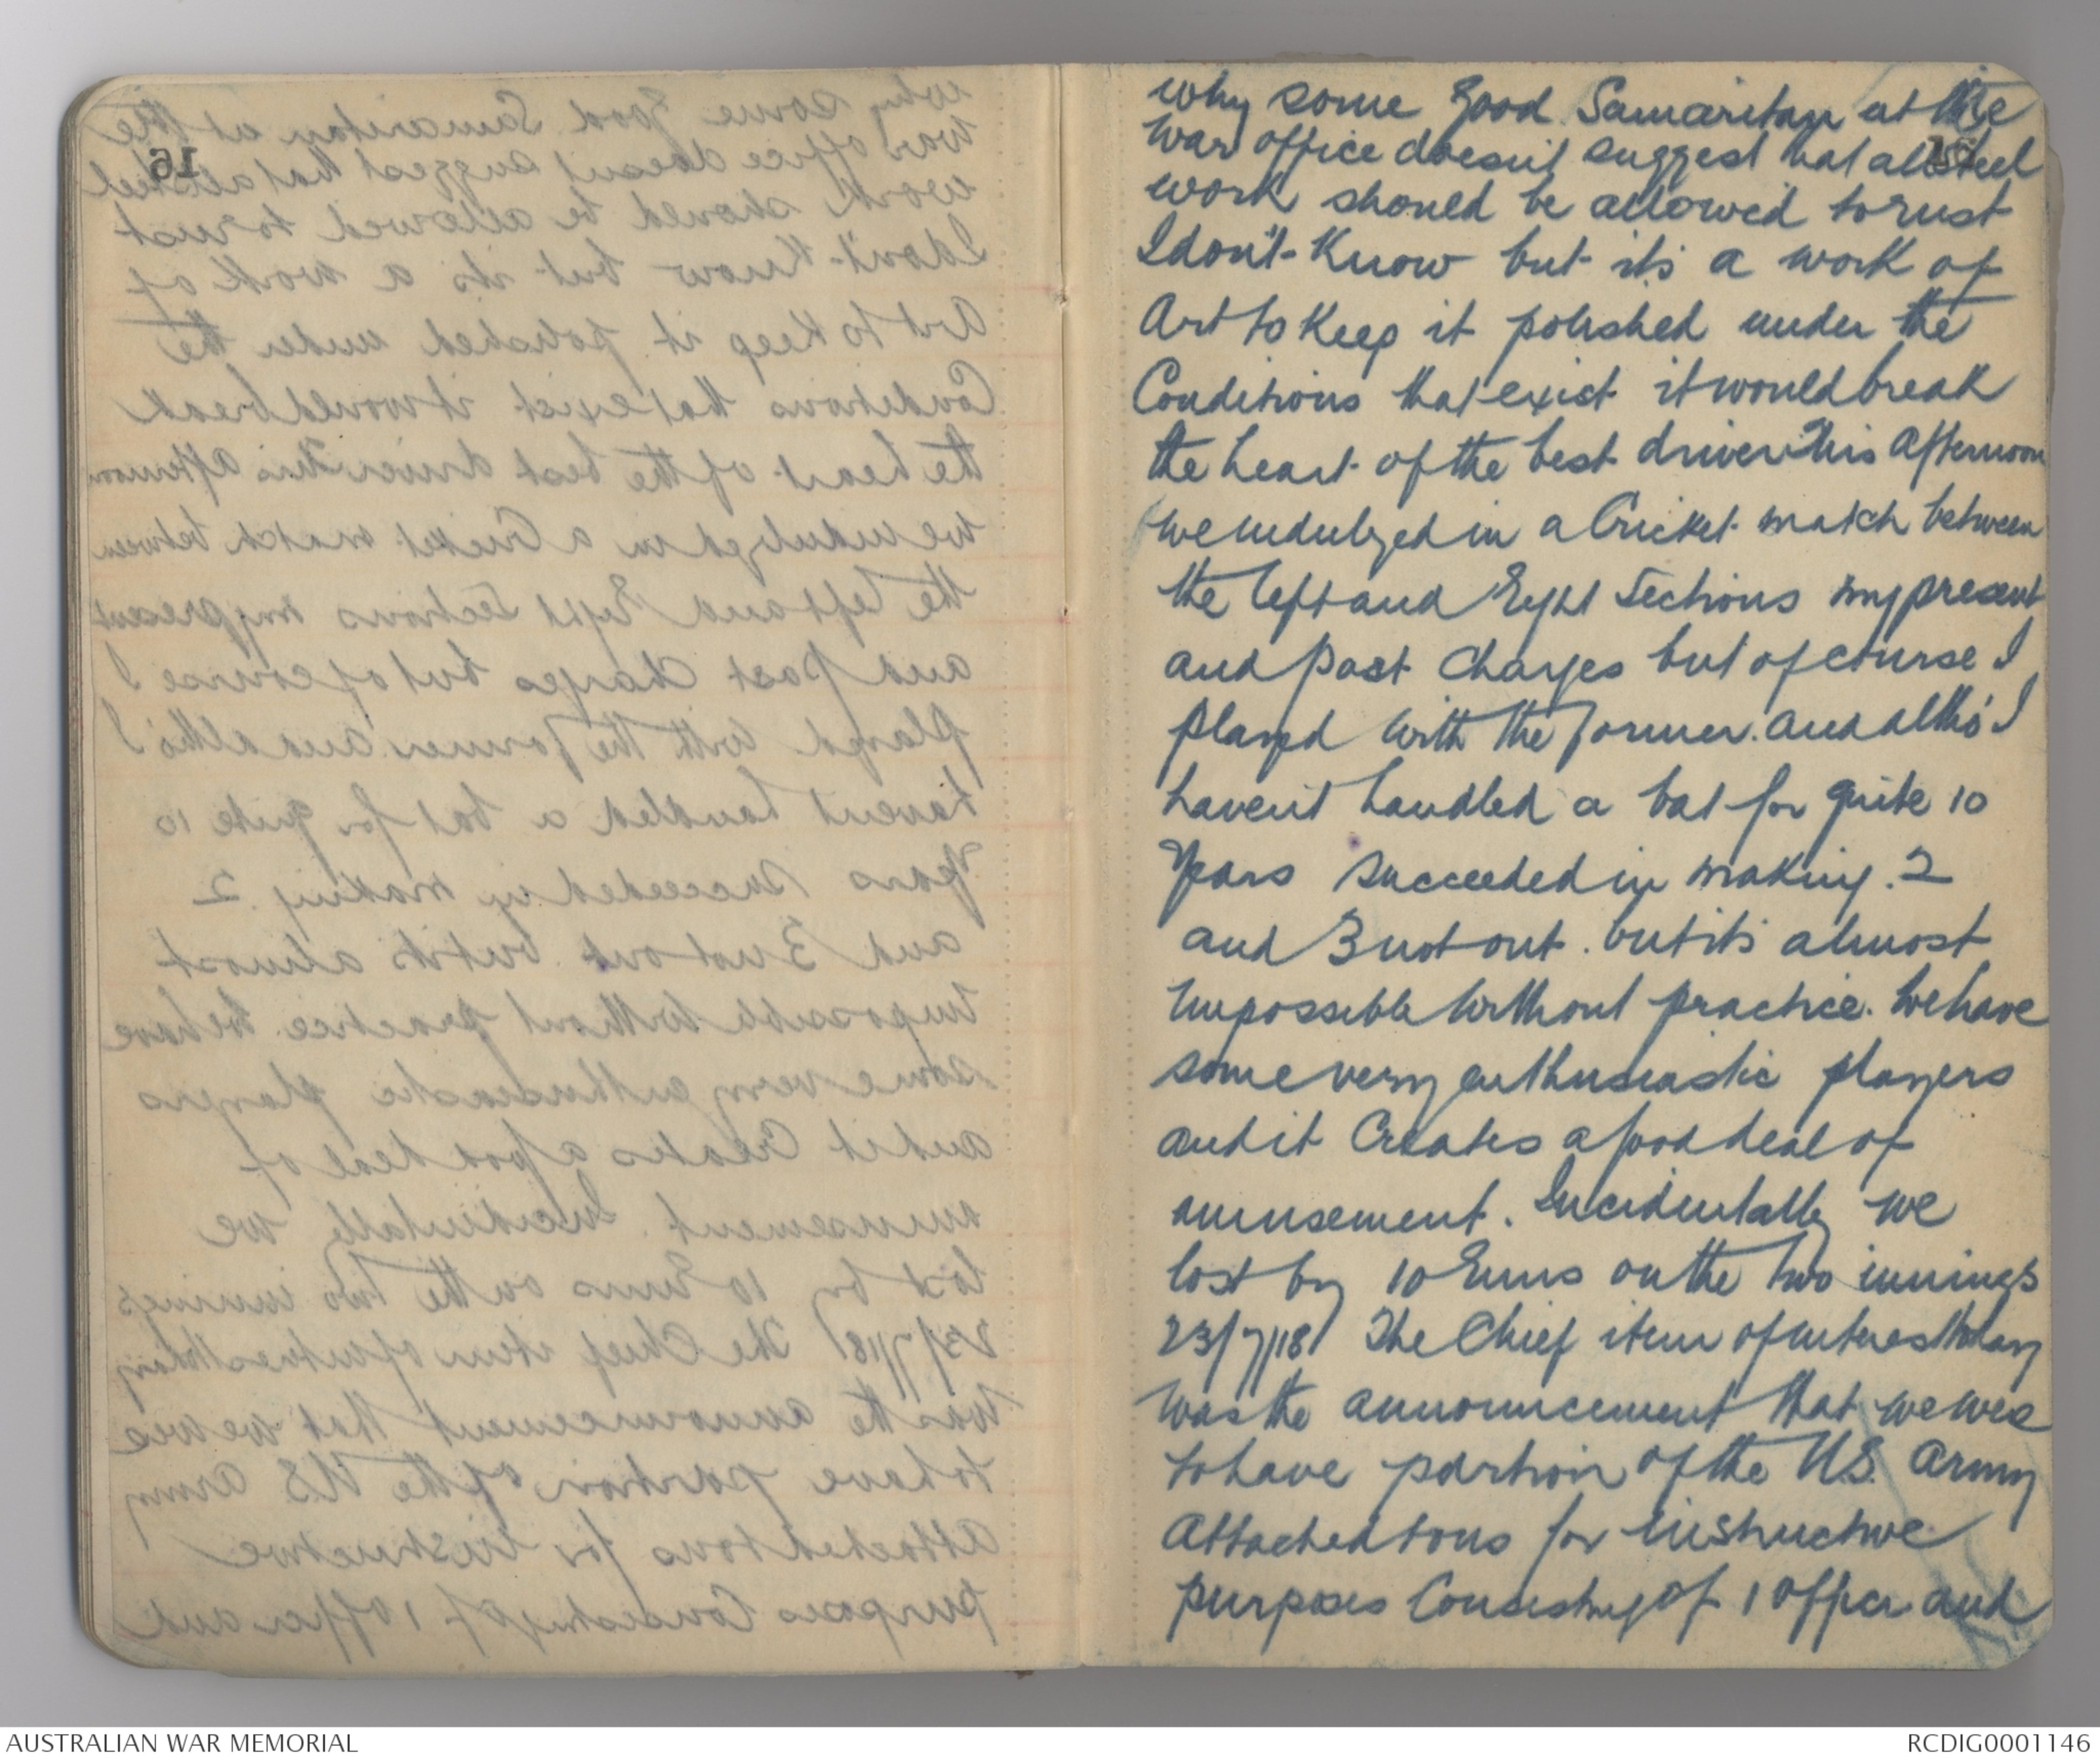 16
why some good Samaritan at the
War office doesn't suggest that all steel
work should be allowed to rust
I don't know but its a work of
Art to keep it polished under the
Conditions that exist it would break
the heart of the best driver. This afternoon
we indulged in a Cricket match between
the left and Right Sections my present
and past charges but of course I
played with the former. and altho' I
havent handled a bat for quite 10
years succeeded in making. 2
and 3 not out. but its almost
impossible without practice. We have
some very enthusiastic players
and it Creates a good deal of
amusement. Incidentally we
lost by 10 Runs on the two innings
23/7/18/ The Chief item of interest today
was the announcement that we were
to have portion of the U.S. Army
Attached to us for instructive
purposes Consisting of 1 officer and
AUSTRALIAN WAR MEMORIAL
RCDIG0001146